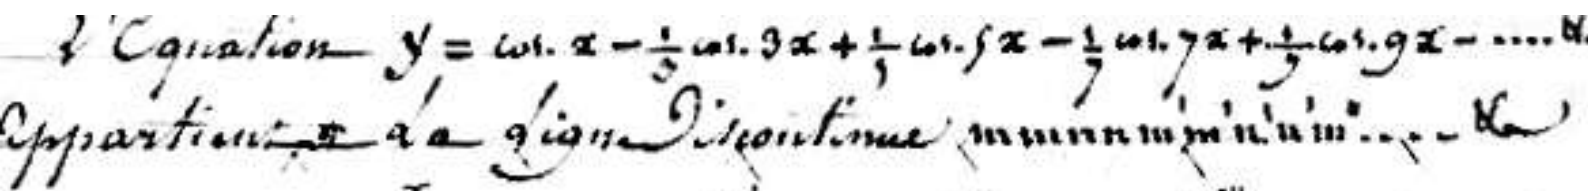 L'Equation y = cos. x - 1/3 cos. 3x + 1/5 cos. 5x - 1/7 cos. 7x + 1/9 cos. 9x - .... &.
appartient à la ligne Discontinue